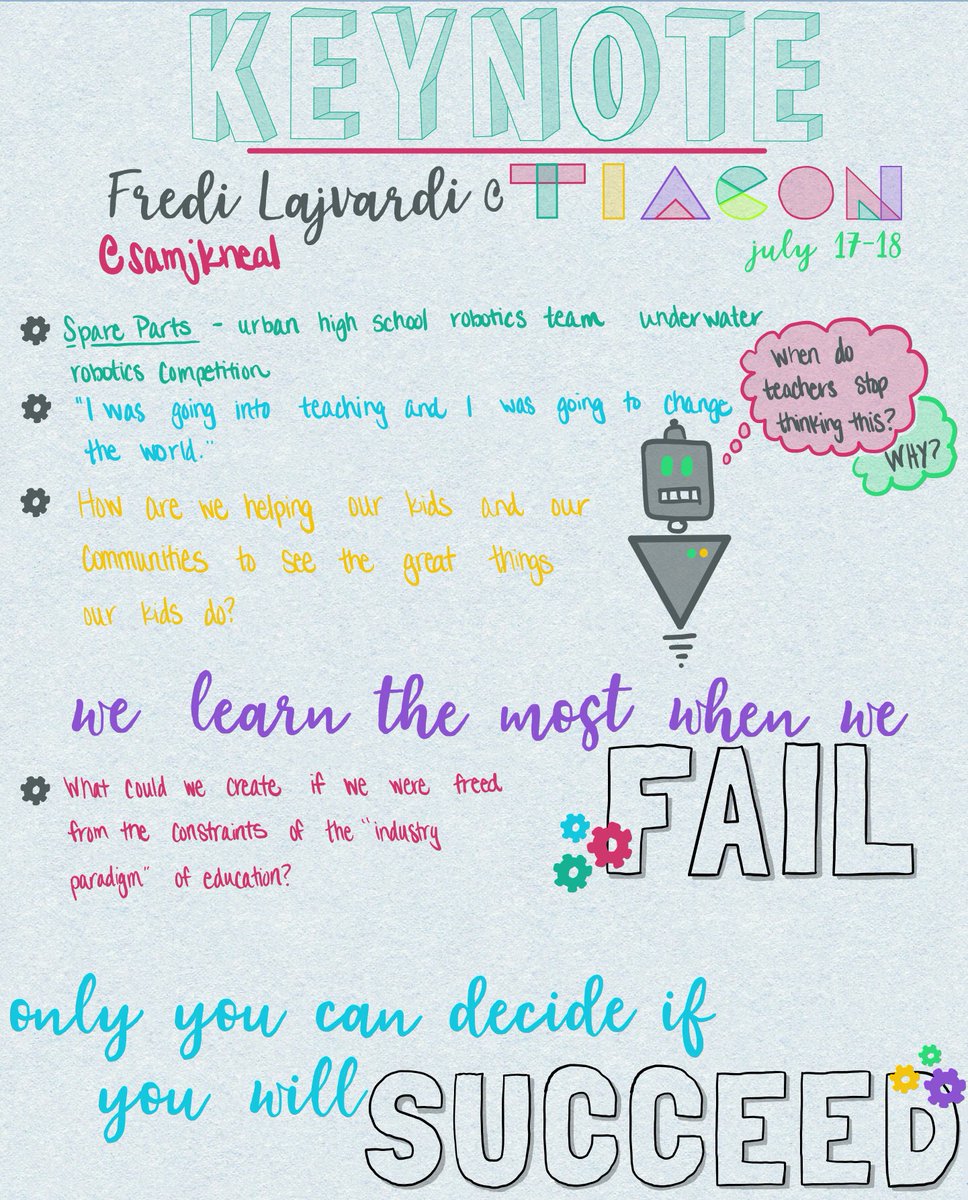 KEYNOTE
Fredi Lajvardi @ TIACON
@samjkneal
july 17-18
Spare Parts - urban high school robotics team underwater
robotics competition
"I was going into teaching and I was going to change
the world."
When do
teachers stop
thinking this?
WHY?
How are we helping our kids and our
communities to see the great things
our kids do?
we learn the most when we
FAIL
What could we create if we were freed
from the constraints of the "industry
paradigm" of education?
only you can decide if
you will SUCCEED